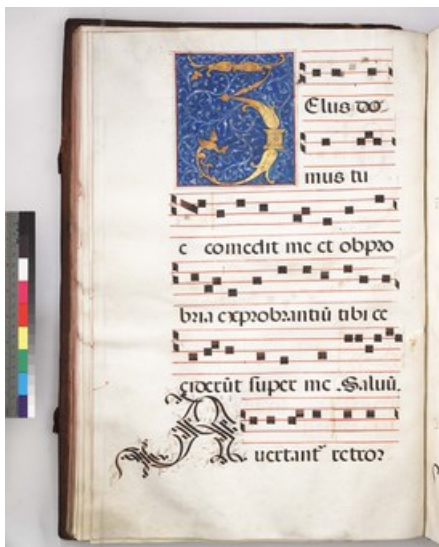 ZElus do
mus tu
e comedit me et obpro
bria exprobrantiū tibi ce
ciderūt super me. Saluū.
Auertant᷑ retroꝛ